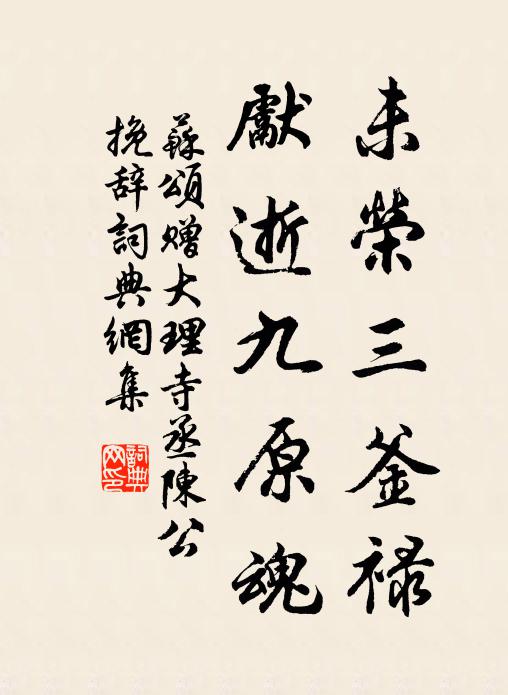 未榮三釜祿
獻逝九原魂
蘇頌贈大理寺丞陳公
挽辞詞典網集
詞典
网印